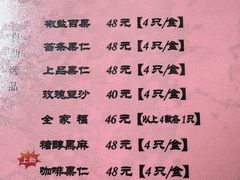 椒盐百果 48元【4只/盒】
苔条果仁 48元【4只/盒】
上品果仁 48元【4只/盒】
玫瑰豆沙 40元【4只/盒】
全家福 46元【以上4款各1只】
糖醇黑麻 48元【4只/盒】
上新 咖啡果仁 48元【4只/盒】